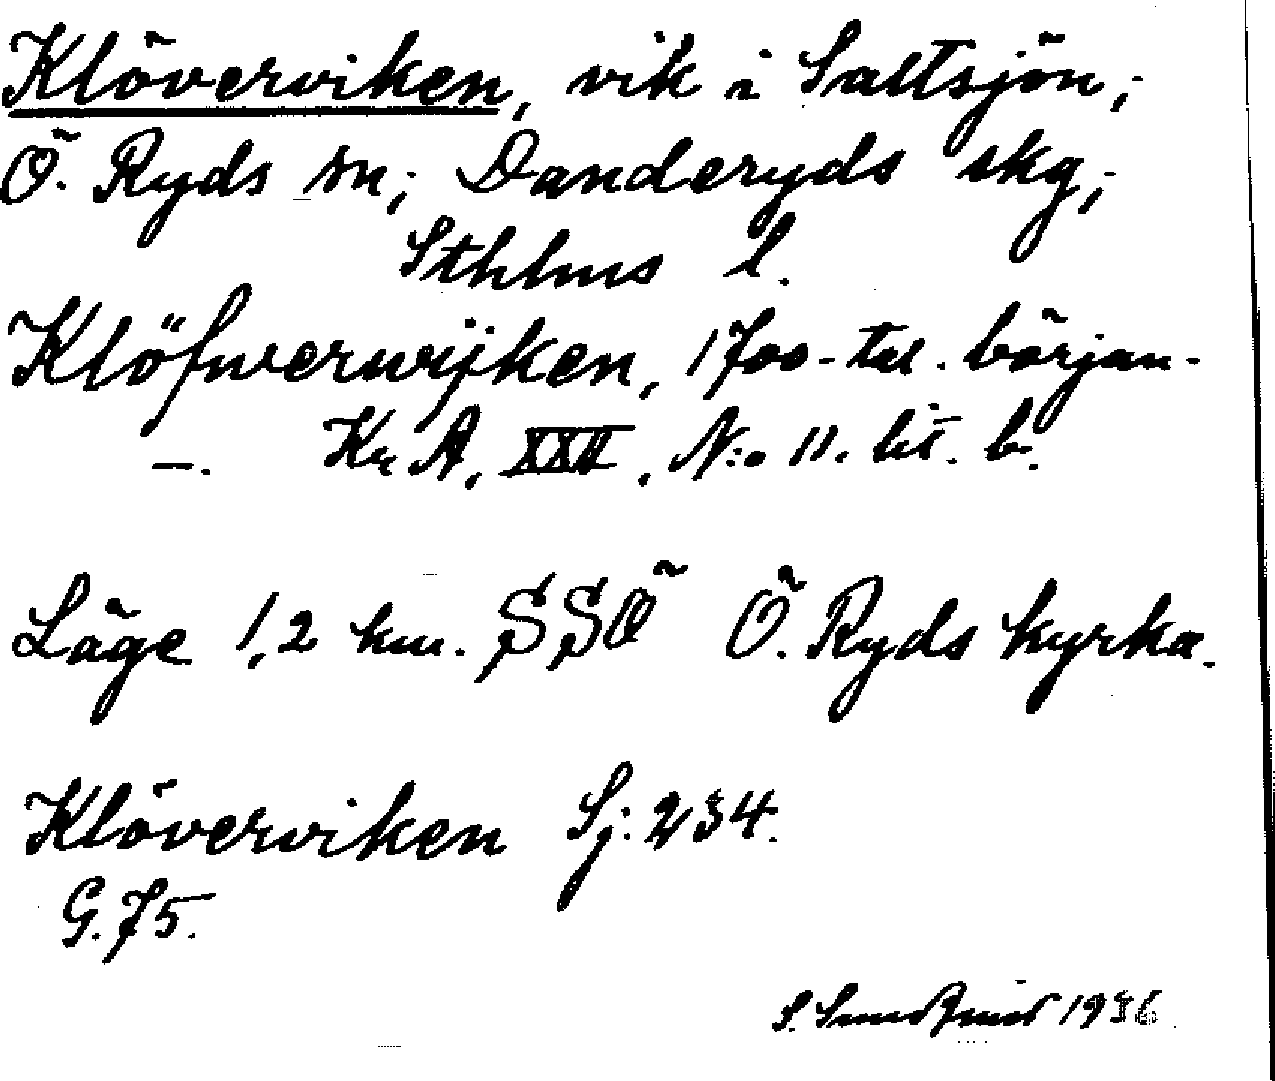 Klöverviken, vik i Saltsjön;
Ö. Ryds sn; Danderyds skg;
Sthlms l.
Klöfwerwijken, 1700-tal. början-
—. Kr A, XXII, N:o 11. lit. b.
Läge 1,2 km. SSÖ Ö. Ryds kyrka.
Klöverviken Sj. 234.
G. 75.
S. 1936